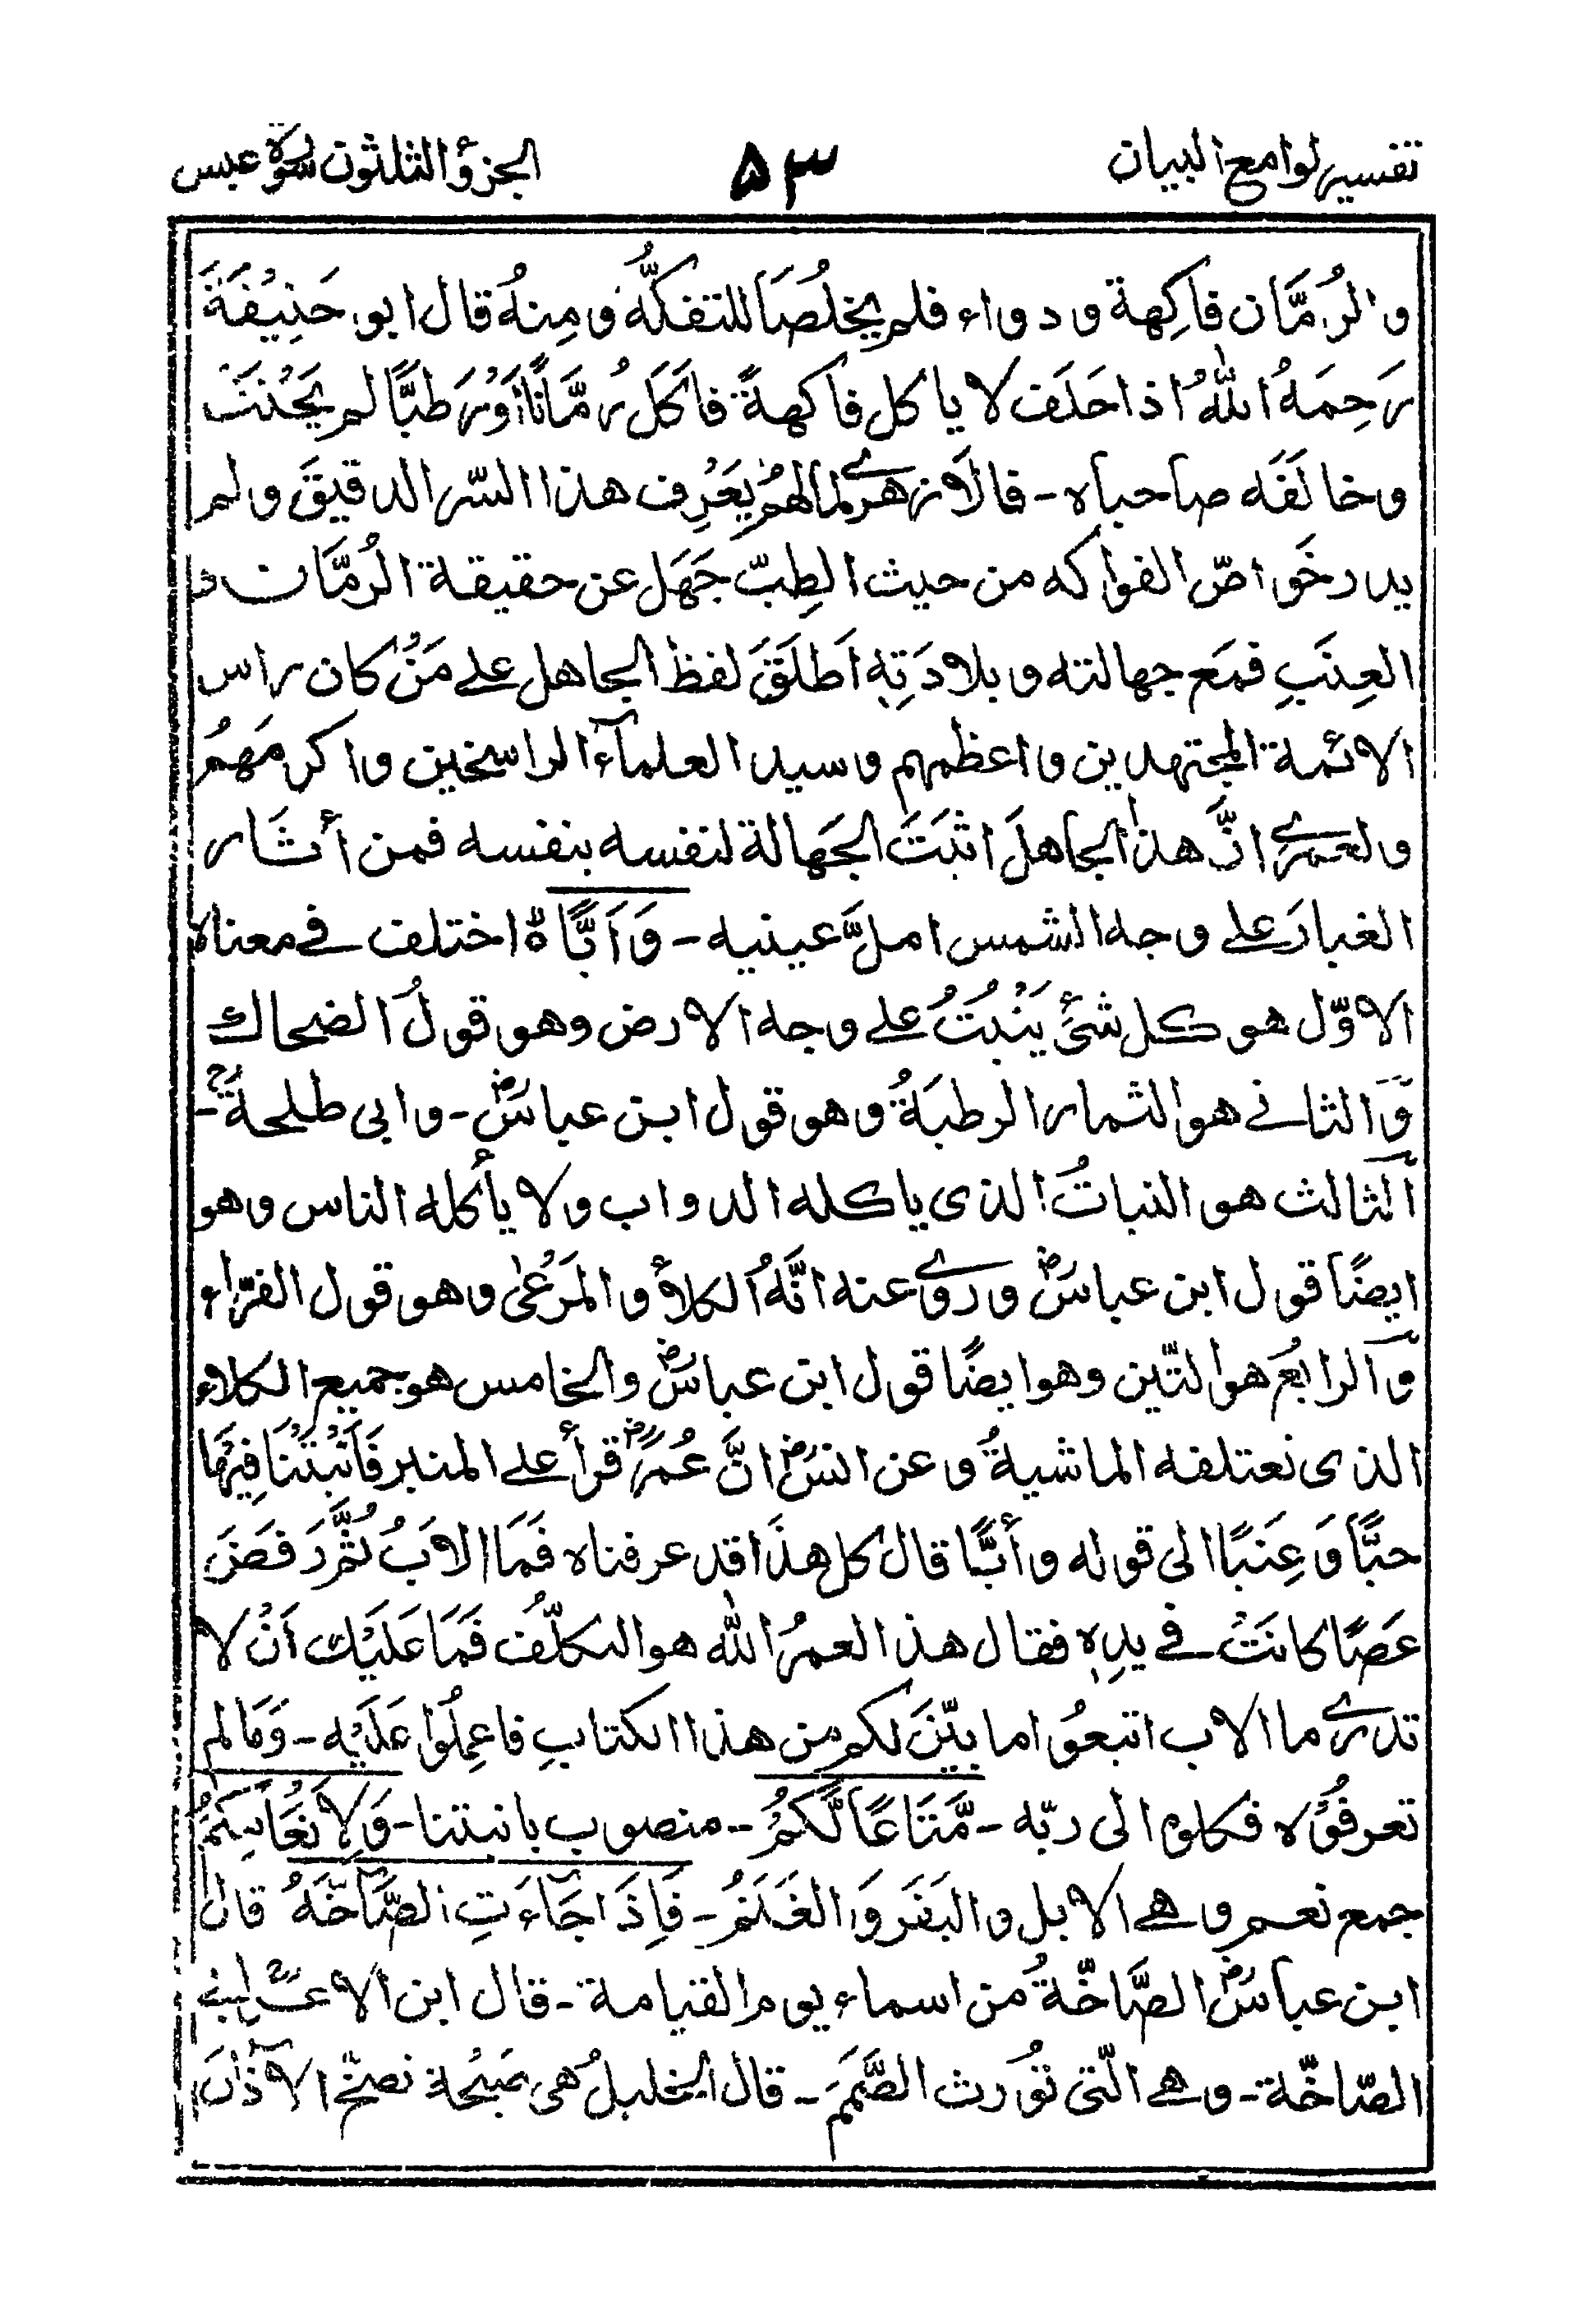 تفسير لوامع البيان ۵۳ الجزؤ الثلثون سورة عبس
والرُمَّان فاكِهة ودواء فلم يخلُصَا للتفكُّه ومِنهُ قال ابو حَنِيْفَةَ
رَحِمَهُ اللّٰهُ اذا حَلَف لا ياكل فاكهةً فاَكَلَ رُمَّانًا اَوْ رَطبًّا لم يَحْنَثْ
وخالَفَه صاحباه - فالاَزهرے لما لم يَعْرِف هذا السّر الدقيقَ ولم
يدر خَواصّ الفواكه من حيث الطِبّ جَهَل عن حقيقة الرُمَّان و
العِنَبِ فمَع جهالته وبلادَتِهٖ اَطلَقَ لفظ الجاهل علے مَنْ كان راس
الائمة المجتهدين واعظمهم وسيد العلمآء الراسخين واكرمَهمُ
ولعمرے انَّ هذا الجاهلَ اثبَتَ الجَهالة لنفسه بنفسه فمن أثَار
الغبارَ علے وجه الشمس املَّ عينيه - وَاَبًّا ۃً اختلف فے معناه
الاوّل هو كل شئَ يَنْبُتُ علے وجه الارض وهو قولُ الضحاك
وَّالثانے هو الثمار الرطبَةُ وهو قول ابن عباسؓ - وابى طلحةؓ -
اَلثالث هو النباتُ الذى ياكله الدواب ولا يأكله الناس وهو
ايضًا قول ابن عباسؓ وروے عنه انَّهُ الكلأ والمَرْعٰى وهو قول الفرّاء
وَالرابعُ هو التّين وهو ايضًا قول ابن عباسؓ والخامس هو جميع الكلاء
الذى نعتلفه الماشيةُ وعن انسؓ انَّ عُمرؓ قرأ علے المنبر فَاَنْبَتْنَا فِيْهَا
حبًّا وَعِنَبًا الى قوله وأبًّا قال كل هذَا قد عرفناه فَمَا الاَبُ ثُمَّ رَفَضَ
عَصًا كانَتْ فے يدِهٖ فقال هذا لعمرُ اللّٰه هو التكلّفُ فَمَا عَلَيْك اَنْ لا
تدرے ما الاب اتبعُوا ما بيّنَ لكم من هذا الكتابِ فاعِلُوا عَلَيْهِ - وَمَا لم
تعرفُوْه فكلوه الى ربّه - مَّتَاعًا لَّكُمْ - منصوب بانبتنا - وَلِاَنْعَامِكُمْ
جمع نعم وهے الابل والبَقَر وَالغَنَمُ - فَاِذَا جَآءَتِ الصَّآخَّهُ قال
ابن عباسؓ الصَّاخَّةُ من اسماء يوم القيامة - قال ابن الاعرابے
الصّاخّة - وهے الّتى تُورث الصَّمَمَ - قال الخليلُ هى صَيْحة تصخّ الآذٰانَ